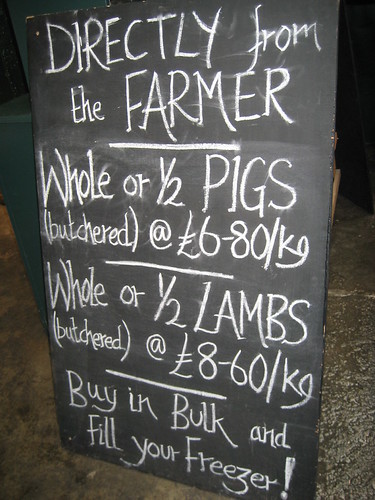 DIRECTLY from
the FARMER
Whole or 1/2 PIGS
(butchered) @ £6-80/kg
Whole or 1/2 LAMBS
(butchered) @ £8-60/kg
Buy in Bulk and
Fill your Freezer!